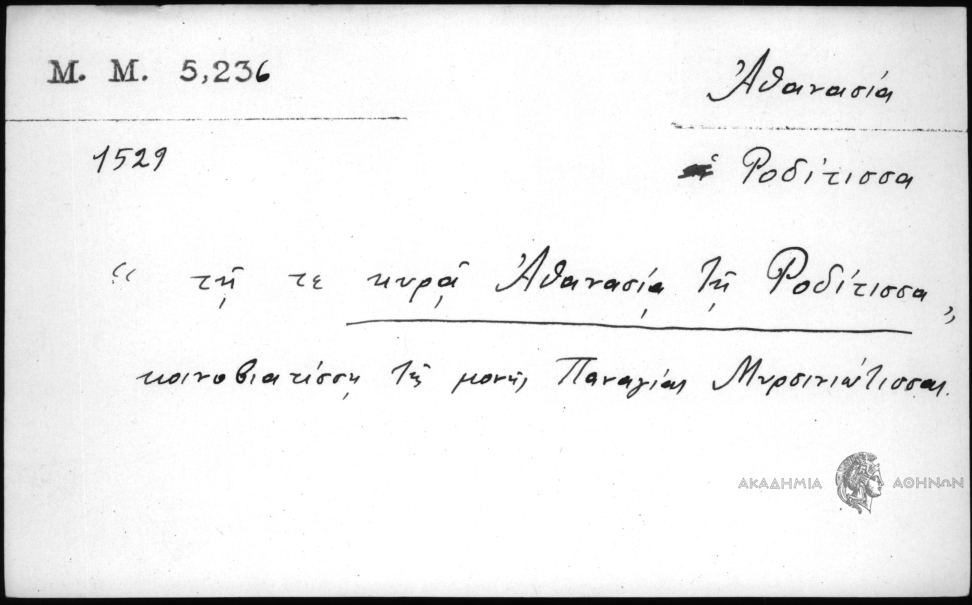 M. M. 5,236
Ἀθανασία
1529
ἡ Ροδίτισσα
“ τῇ τε κυρᾷ Ἀθανασίᾳ τῇ Ροδίτισσα „
κοινοβιατίσσῃ τῆς μονῆς Παναγίας Μυρσινιώτισσας.
ΑΚΑΔΗΜΙΑ ΑΘΗΝΩΝ